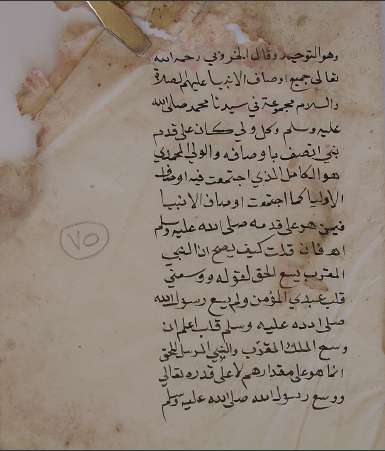 وهو التوحيد وقال الخروفي رحمه الله
تعالى جميع اوصاف الانبيا عليهم الصلاة
والسلام مجموعة في سيدنا محمد صلى الله
عليه وسلم وكل ولى كان على قدم
بني اتصف باوصافه والولي المحمدي
هو الكامل الذي اجتمعت فيه اوصاف
الاوليا كما اجتمعت اوصاف الانبيا
فيمن هو على قدمه صلى الله عليه وسلم
اهـ فان قلت كيف يصح ان النبي
المقرب يسع الحق لقوله ووسعني
قلب عبدي المؤمن ولم يسع رسول الله
صلى الله عليه وسلم قلب اعلم ان
وسع الملك المقرب والنبي المرسل للحق
انما هو على مقدارهم لا على قدره تعالى
ووسع رسول الله صلى الله عليه وسلم
٧٥